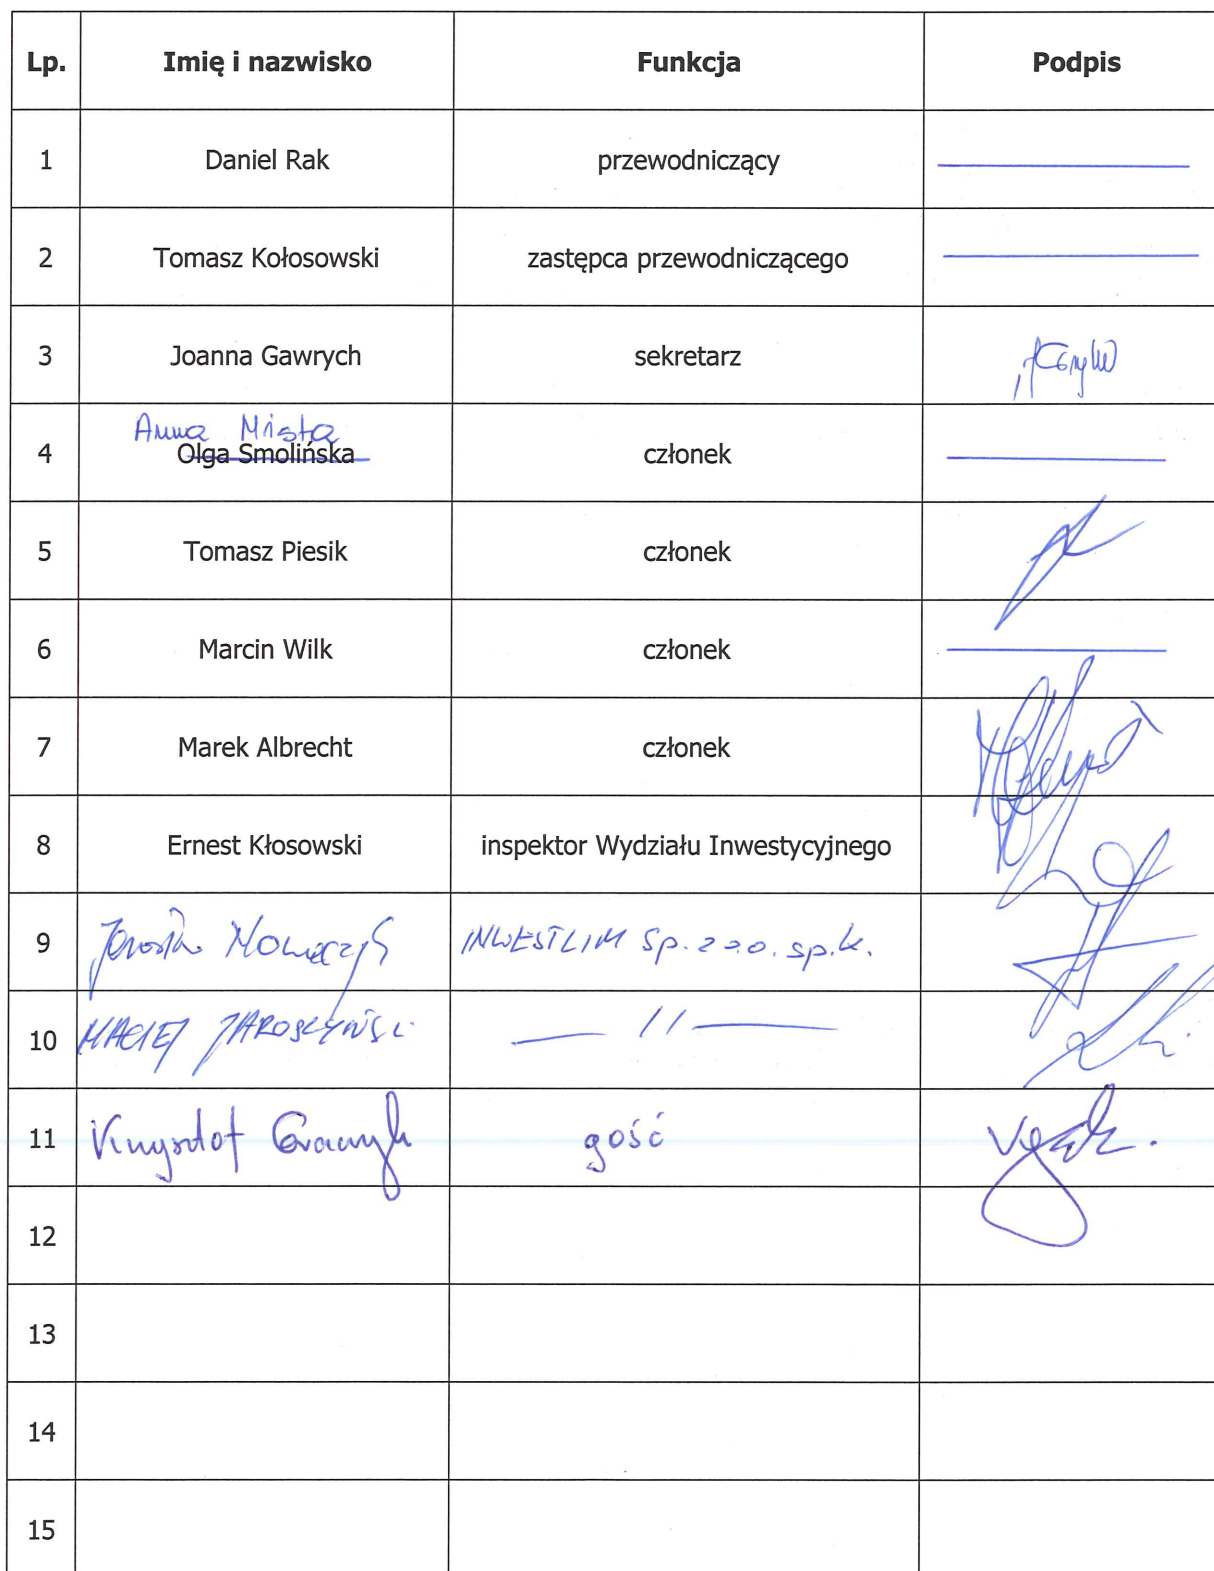 Lp. Imię i nazwisko Funkcja Podpis
1 Daniel Rak przewodniczący
2 Tomasz Kołosowski zastępca przewodniczącego
3 Joanna Gawrych sekretarz
Anna Mista
4 Olga Smolińska członek
5 Tomasz Piesik członek
6 Marcin Wilk członek
7 Marek Albrecht członek
8 Ernest Kłosowski inspektor Wydziału Inwestycyjnego
9 INWESTLIM Sp. z o.o. sp.k.
10 MACIEJ — // —
11 Krzysztof gość
12
13
14
15